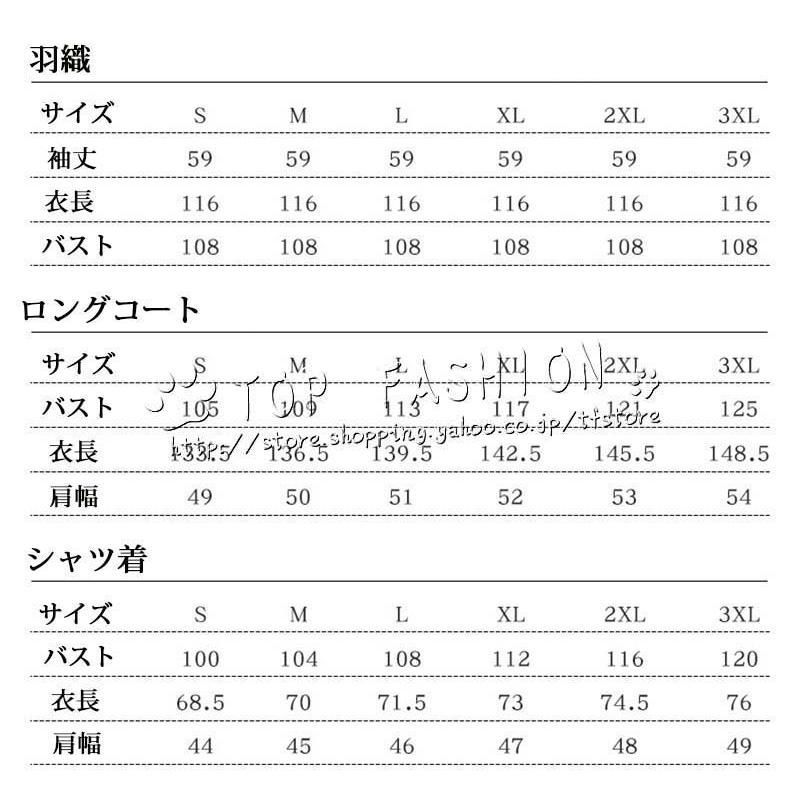 羽織
サイズ S M L XL 2XL 3XL
袖丈 59 59 59 59 59 59
衣長 116 116 116 116 116 116
バスト 108 108 108 108 108 108
ロングコート
サイズ S M L XL 2XL 3XL
TOP FASHION
バスト 105 109 113 117 121 125
http://store.shopping.yahoo.co.jp/tfstore
衣長 133.5 136.5 139.5 142.5 145.5 148.5
肩幅 49 50 51 52 53 54
シャツ着
サイズ S M L XL 2XL 3XL
バスト 100 104 108 112 116 120
衣長 68.5 70 71.5 73 74.5 76
肩幅 44 45 46 47 48 49